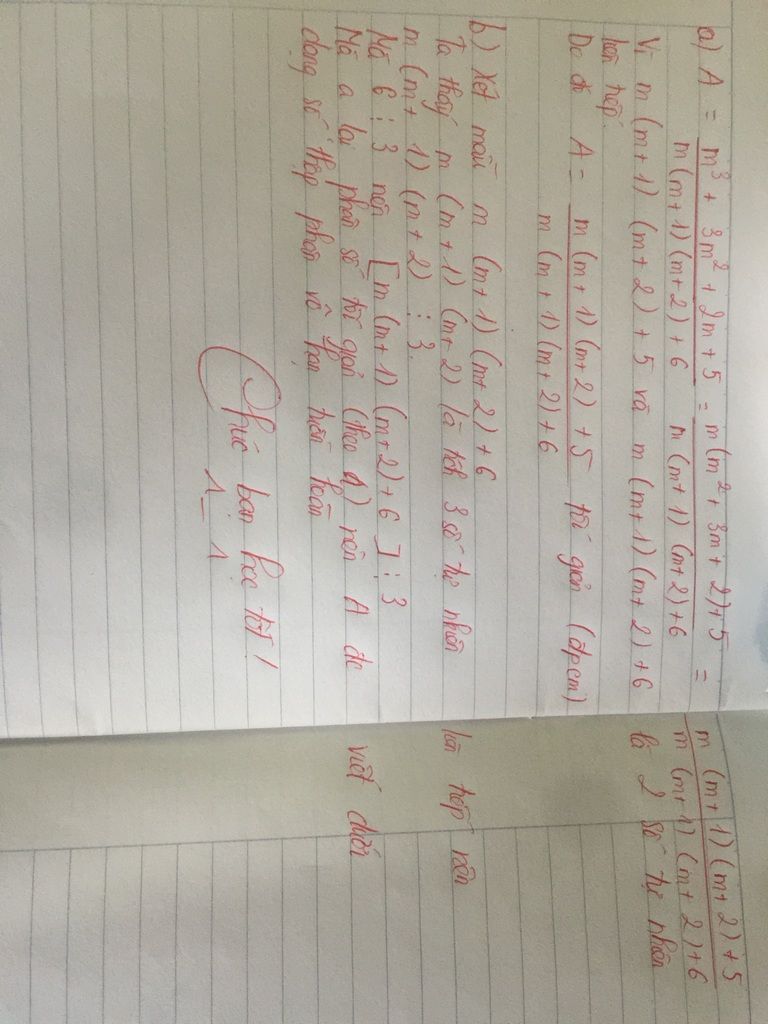 a) A = m³ + 3m² + 2m + 5 / m(m+1)(m+2)+6 = m(m²+3m+2)+5 / m(m+1)(m+2)+6 = m(m+1)(m+2)+5 / m(m+1)(m+2)+6
Vì m(m+1)(m+2)+5 và m(m+1)(m+2)+6 là 2 số tự nhiên
liên tiếp.
Do đó A = m(m+1)(m+2)+5 / m(m+1)(m+2)+6 tối giản (đpcm)
b) Xét mẫu m(m+1)(m+2)+6
Ta thấy m(m+1)(m+2) là tích 3 số tự nhiên liên tiếp nên
m(m+1)(m+2) ⋮ 3.
Mà 6 ⋮ 3 nên [m(m+1)(m+2)+6] ⋮ 3
Mà a lại phân số tối giản (theo a) nên A đc viết dưới
dạng số thập phân vô hạn tuần hoàn
Chúc bạn học tốt!
1 _ 1